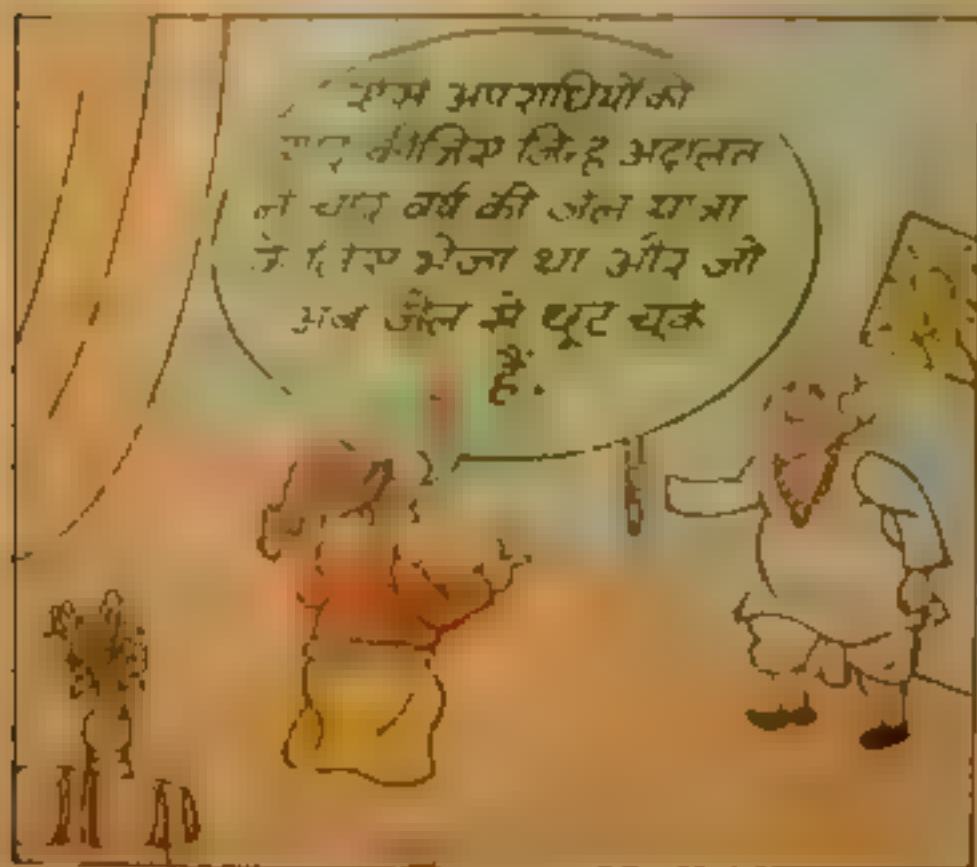 अपराधियों को
कीजिए जिन्हें अदालत
ने चार वर्ष की जेल यात्रा
के लिए भेजा था और जो
अब जेल से छूट चुके
हैं.